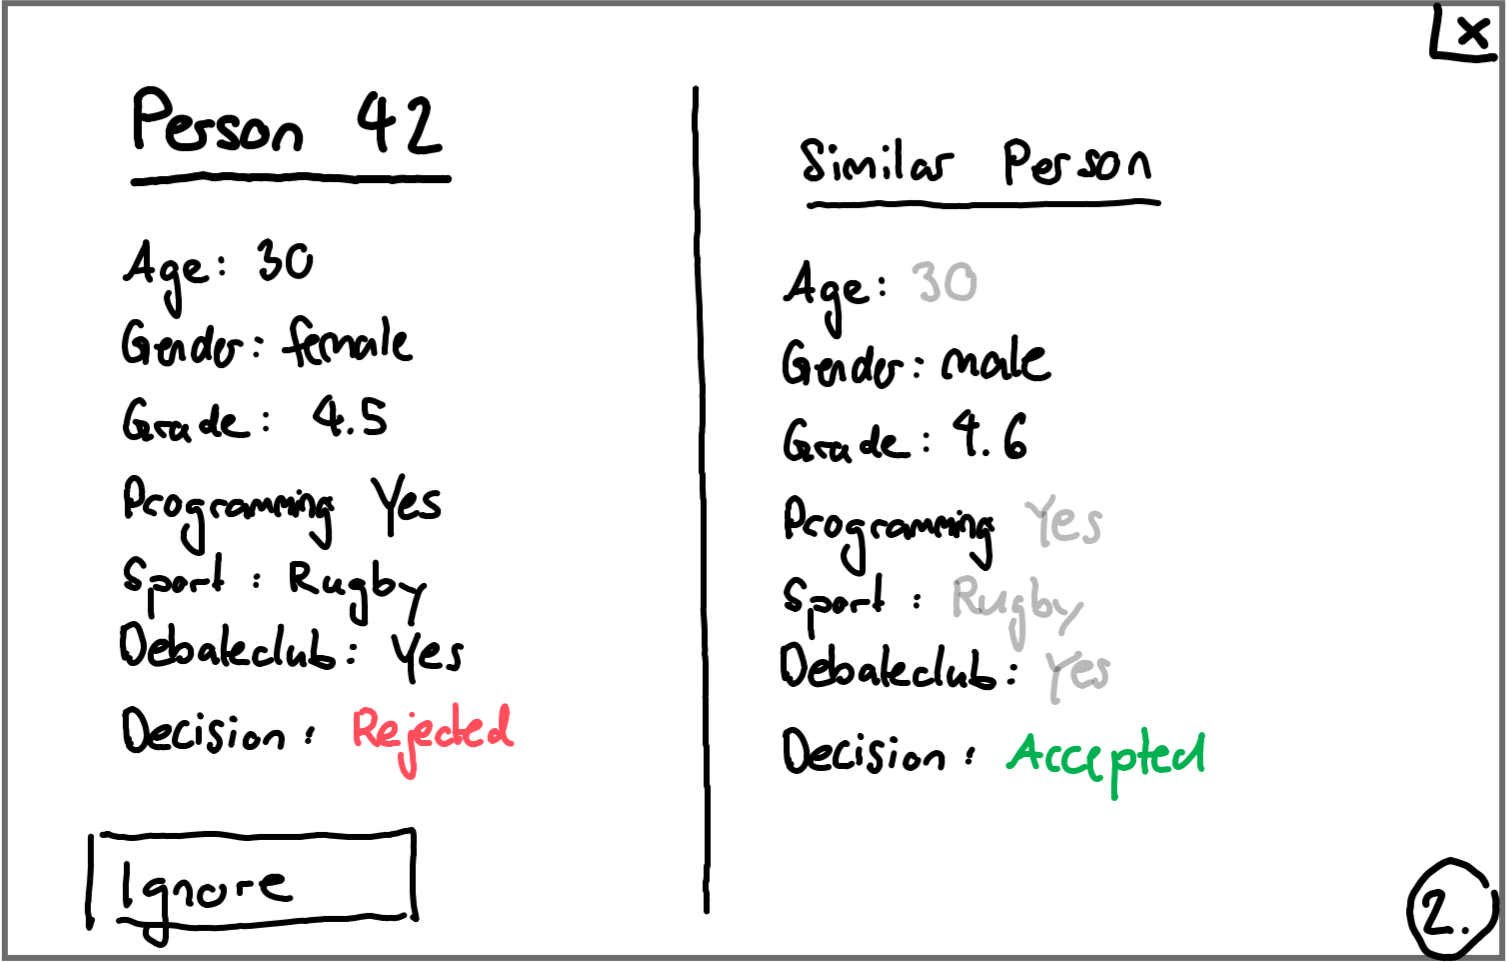 x
Person 42
Age: 30
Gender: female
Grade: 4.5
Programming Yes
Sport: Rugby
Debateclub: Yes
Decision: Rejected
Ignore
Similar Person
Age: 30
Gender: male
Grade: 4.6
Programming Yes
Sport: Rugby
Debateclub: Yes
Decision: Accepted
2.